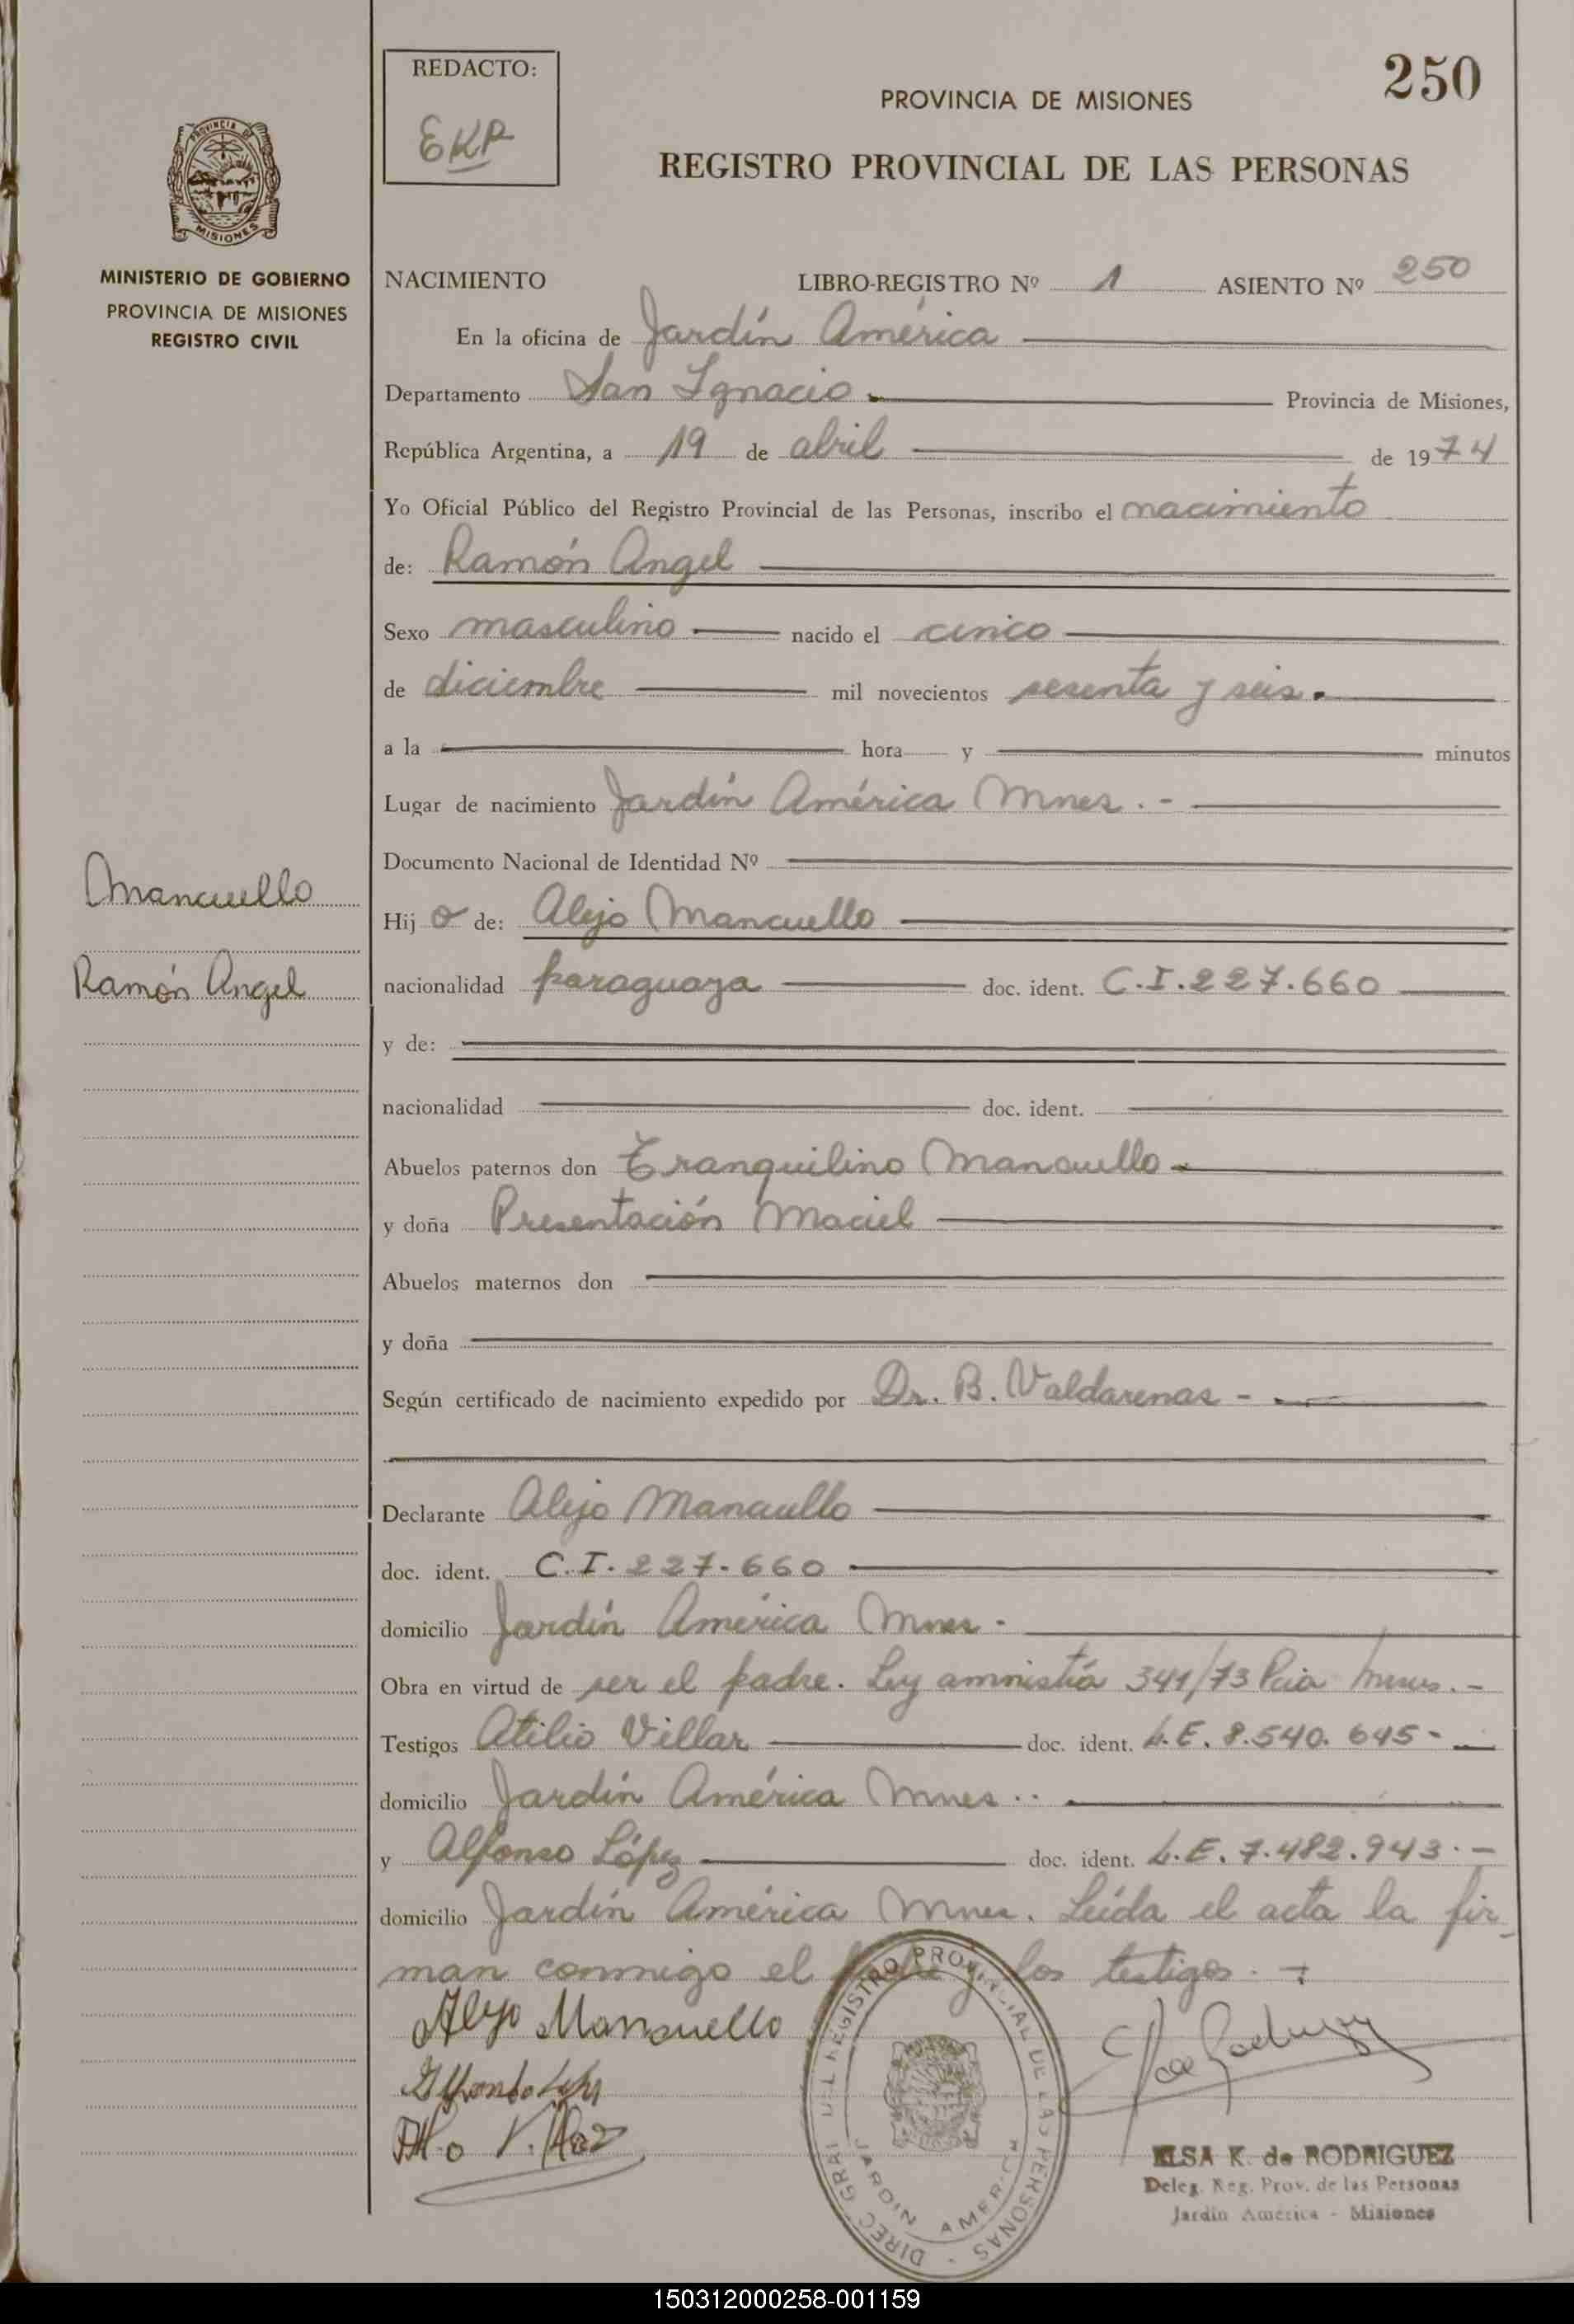 REDACTO:
EKR
250
PROVINCIA DE MISIONES
REGISTRO PROVINCIAL DE LAS PERSONAS
PROVINCIA DE
MISIONES
MINISTERIO DE GOBIERNO
PROVINCIA DE MISIONES
REGISTRO CIVIL
NACIMIENTO LIBRO-REGISTRO Nº 1 ASIENTO Nº 250
En la oficina de Jardín América
Departamento San Ignacio Provincia de Misiones,
República Argentina, a 19 de abril de 1974
Yo Oficial Público del Registro Provincial de las Personas, inscribo el nacimiento
de: Ramón Angel
Sexo masculino nacido el cinco
de diciembre mil novecientos sesenta y seis.
a la hora y minutos
Lugar de nacimiento Jardín América Mnes. -
Documento Nacional de Identidad Nº
Mancuello
Ramón Angel
Hijo de: Alejo Mancuello
nacionalidad paraguaya doc. ident. C.I. 227.660
y de:
nacionalidad doc. ident.
Abuelos paternos don Tranquilino Mancuello
y doña Presentación Maciel
Abuelos maternos don
y doña
Según certificado de nacimiento expedido por Dr. B. Valdarenas -
Declarante Alejo Mancuello
doc. ident. C.I. 227.660
domicilio Jardín América Mnes -
Obra en virtud de ser el padre. Ley amnistía 341/73 Pcia Mnes. -
Testigos Atilio Villar doc. ident. L.E. 8.540.645 -
domicilio Jardín América Mnes ..
y Alfonso López doc. ident. L.E. 7.482.943. -
domicilio Jardín América Mnes. Leída el acta la fir-
man conmigo el padre y los testigos. -
Alejo Mancuello
DIREC. GRAL DEL REGISTRO PROVINCIAL DE LAS PERSONAS -
JARDIN AMERICA
ELSA K. de RODRIGUEZ
Deleg. Reg. Prov. de las Personas
Jardín América - Misiones
150312000258-001159